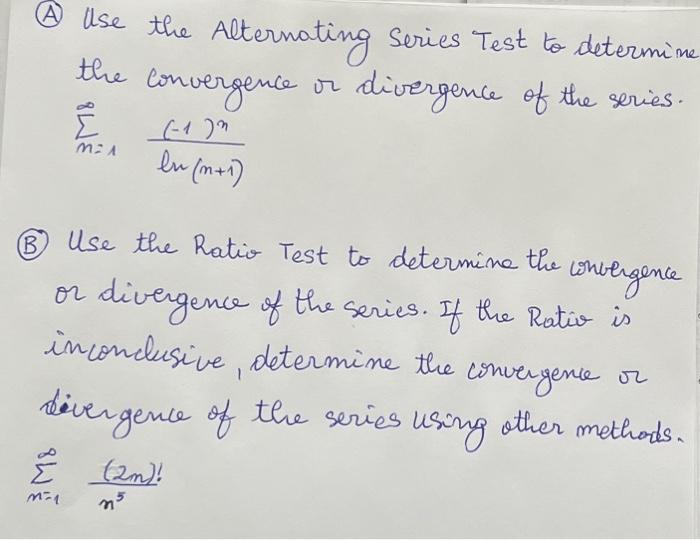 Ⓐ Use the Alternating Series Test to determine
the convergence or divergence of the series.
∞
Σ (-1)ⁿ / ln(n+1)
n=1
Ⓑ Use the Ratio Test to determine the convergence
or divergence of the series. If the Ratio is
inconclusive, determine the convergence or
divergence of the series using other methods.
∞
Σ (2n)! / n⁵
n=1